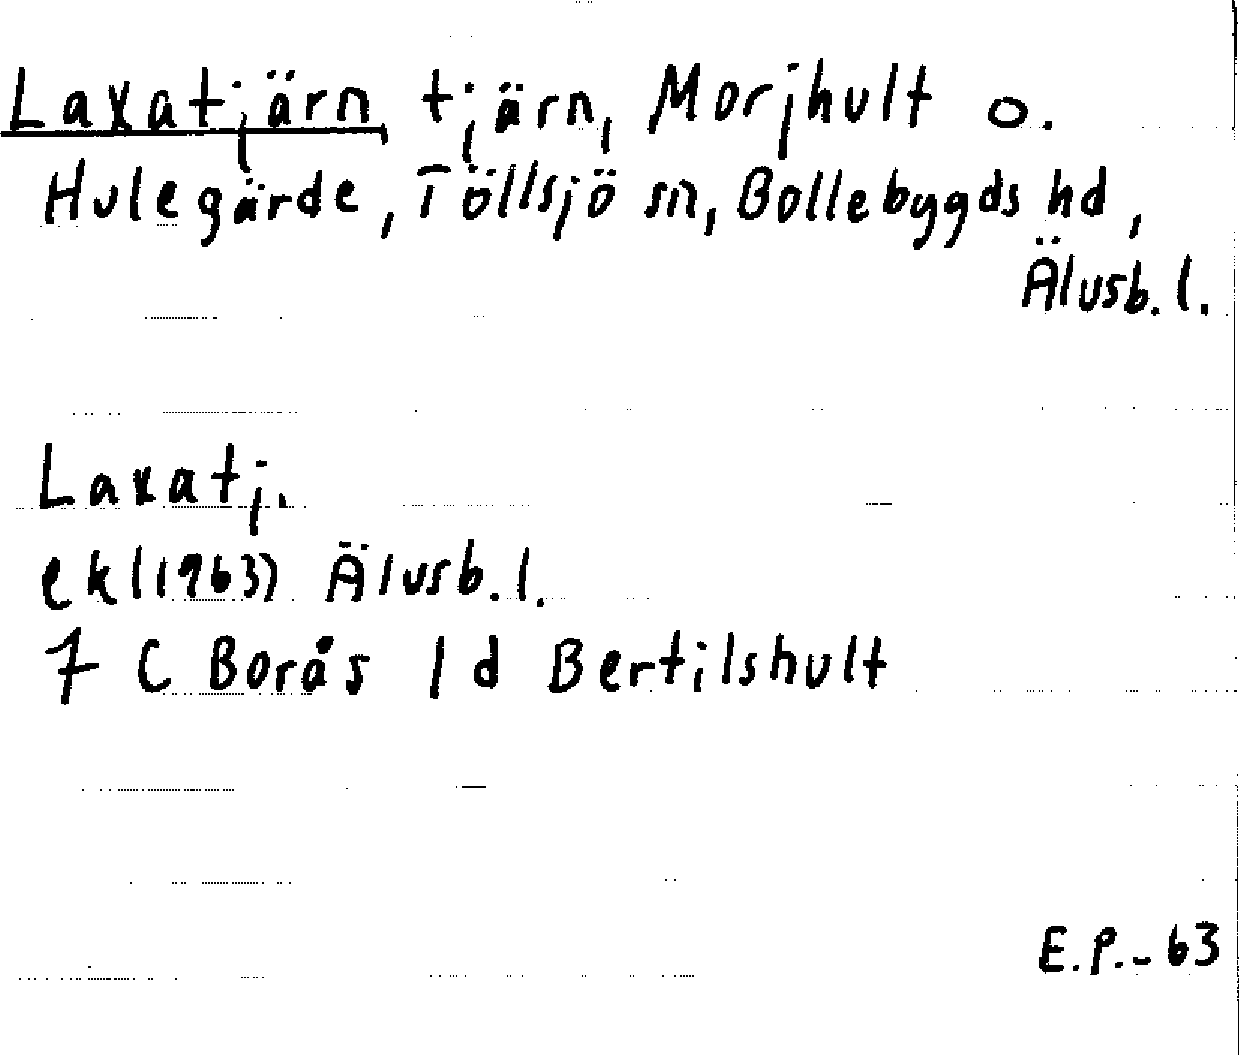 Laxatjärn, tjärn, Morjhult o.
Hulegärde, Töllsjö sn, Bollebygds hd,
Älvsb. l.
Laxatj.
ekl(1963) Älvsb. l.
7 C Borås 1 d Bertilshult
E.P.-63